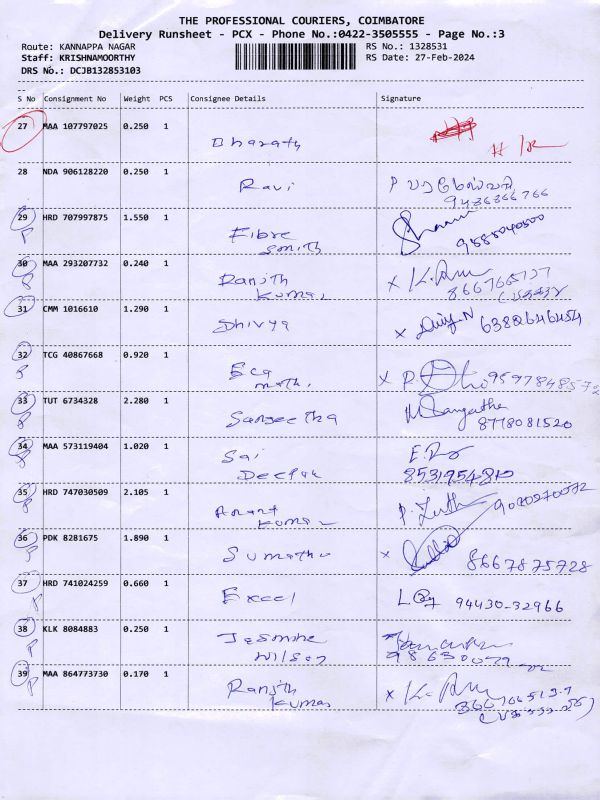 THE PROFESSIONAL COURIERS, COIMBATORE
Delivery Runsheet - PCX - Phone No.:0422-3505555 - Page No.:3
Route: KANNAPPA NAGAR
RS No.: 1328531
Staff: KRISHNAMOORTHY
RS Date: 27-Feb-2024
DRS No.: DCJB132853103
S No Consignment No Weight PCS Consignee Details Signature
27 MAA 107797025 0.250 1
Bharath
28 NDA 906128220 0.250 1
Ravi
29 HRD 707997875 1.550 1
Fibre
Smith
30 MAA 293207732 0.240 1
Ranjith
Kumar
31 CMM 1016610 1.290 1
Dhivya 6382646454
32 TCG 40867668 0.920 1
33 TUT 6734328 2.280 1
Sangeetha
8778081520
34 MAA 573119404 1.020 1
Sai
Deepak
35 HRD 747030509 2.105 1
Anant
Kumar
36 PDK 8281675 1.890 1
8667875728
37 HRD 741024259 0.660 1
Excel 94430-32966
38 KLK 8084883 0.250 1
Jasmine
Wilson
39 MAA 864773730 0.170 1
Ranjith
Kumar